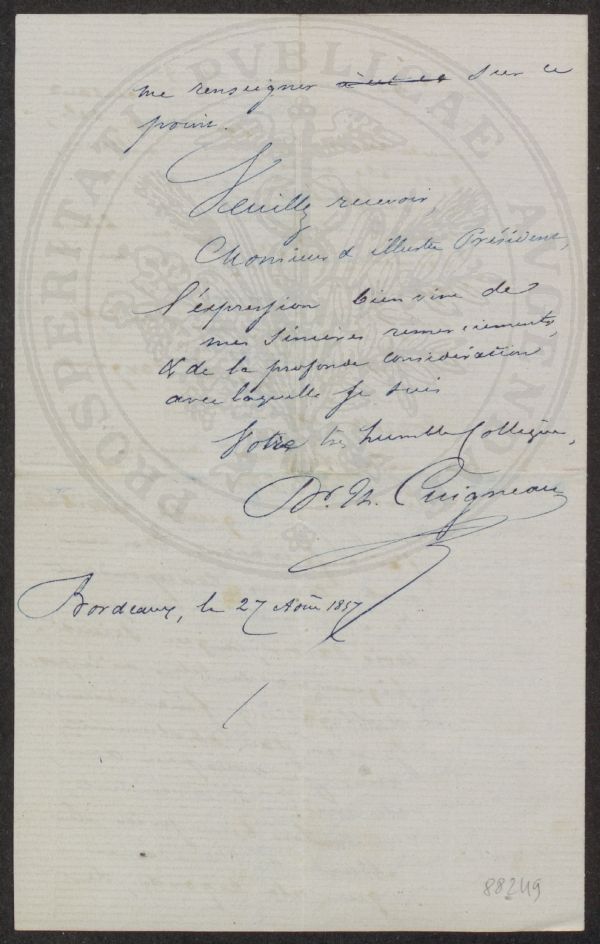 me renseigner sur ce
point.
Veuillez recevoir,
Monsieur & illustre Président,
l'expression bien vive de
mes sincères remerciements,
& de la profonde considération
avec laquelle je suis
Votre très humble Collègue,
Dr. Th. Cuigneau
Bordeaux, le 27 Août 1857
88249
PROSPERITATI PVBLICAE AVGENDAE